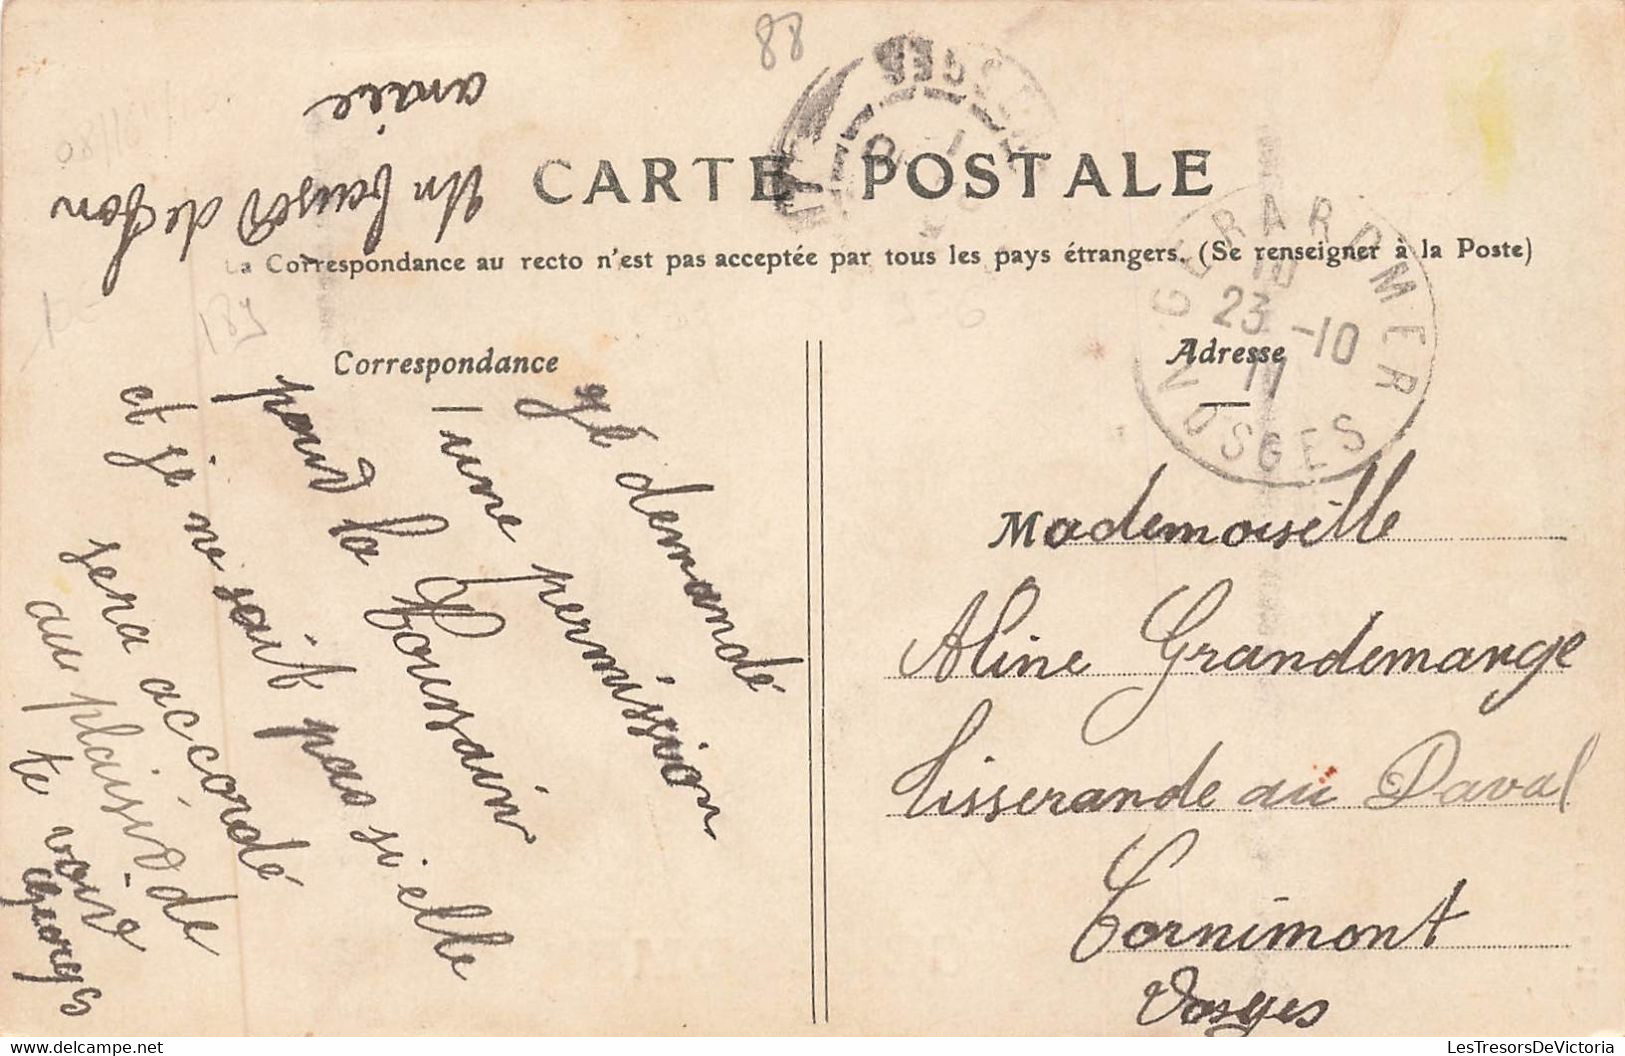 88
Un bauser de ton
amie
CARTE POSTALE
La Correspondance au recto n'est pas acceptée par tous les pays étrangers. (Se renseigner à la Poste)
GERARDMER
10
23 -10
11
VOSGES
VOSGES
Correspondance
Adresse
Jé demandé
une permission
pour la Toussain
et je ne sait pas si elle
sera accordé
au plaisir de
te voire
Georges
Mademoiselle
Aline Grandemange
Tisserande au Daval
Cornimont
Vosges
LesTresorsDeVictoria
https://www.delcampe.net